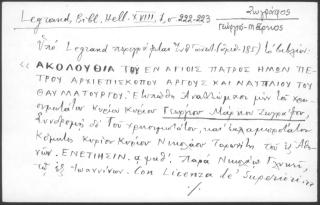 Legrand, Bibl. Hell. XVIII, 1, σ 222-223
Ζωγράφος
Γεώργιο-Μάρκος
Ὑπὸ Legrand περιγράφεται (ἀριθ. 185) τὸ βιβλίον:
«ΑΚΟΛΟΥΘΙΑ ΤΟΥ ΕΝ ΑΓΙΟΙΣ ΠΑΤΡΟΣ ΗΜΩΝ ΠΕ-
ΤΡΟΥ ΑΡΧΙΕΠΙΣΚΟΠΟΥ ΑΡΓΟΥΣ ΚΑΙ ΝΑΥΠΛΙΟΥ ΤΟΥ
ΘΑΥΜΑΤΟΥΡΓΟΥ. Ἐτυπώθη Ἀναλώμασι μὲν τοῦ χρησι-
μωτάτου Κυρίου Κυρίου Γεωργίου Μάρκου Ζωγράφου,
Συνδρομῇ δὲ τοῦ χρησιμωτάτου, καὶ ἐκλαμπροτάτου
Κόμητος Κυρίου Κυρίου Νικολάου Ταρωνίτη τοῦ ἐξ Ἀθη-
νῶν. ΕΝΕΤΙΗΣΙΝ. Παρὰ Νικολάῳ Γλυκεῖ,
τῷ ἐξ Ἰωαννίνων. Con Licenza de' Superiori.»
./.